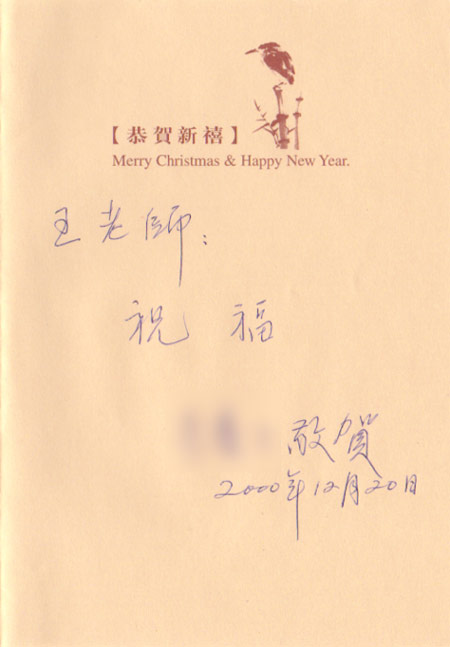 【恭賀新禧】
Merry Christmas & Happy New Year.
王老師:
祝 福
敬賀
2000年12月20日